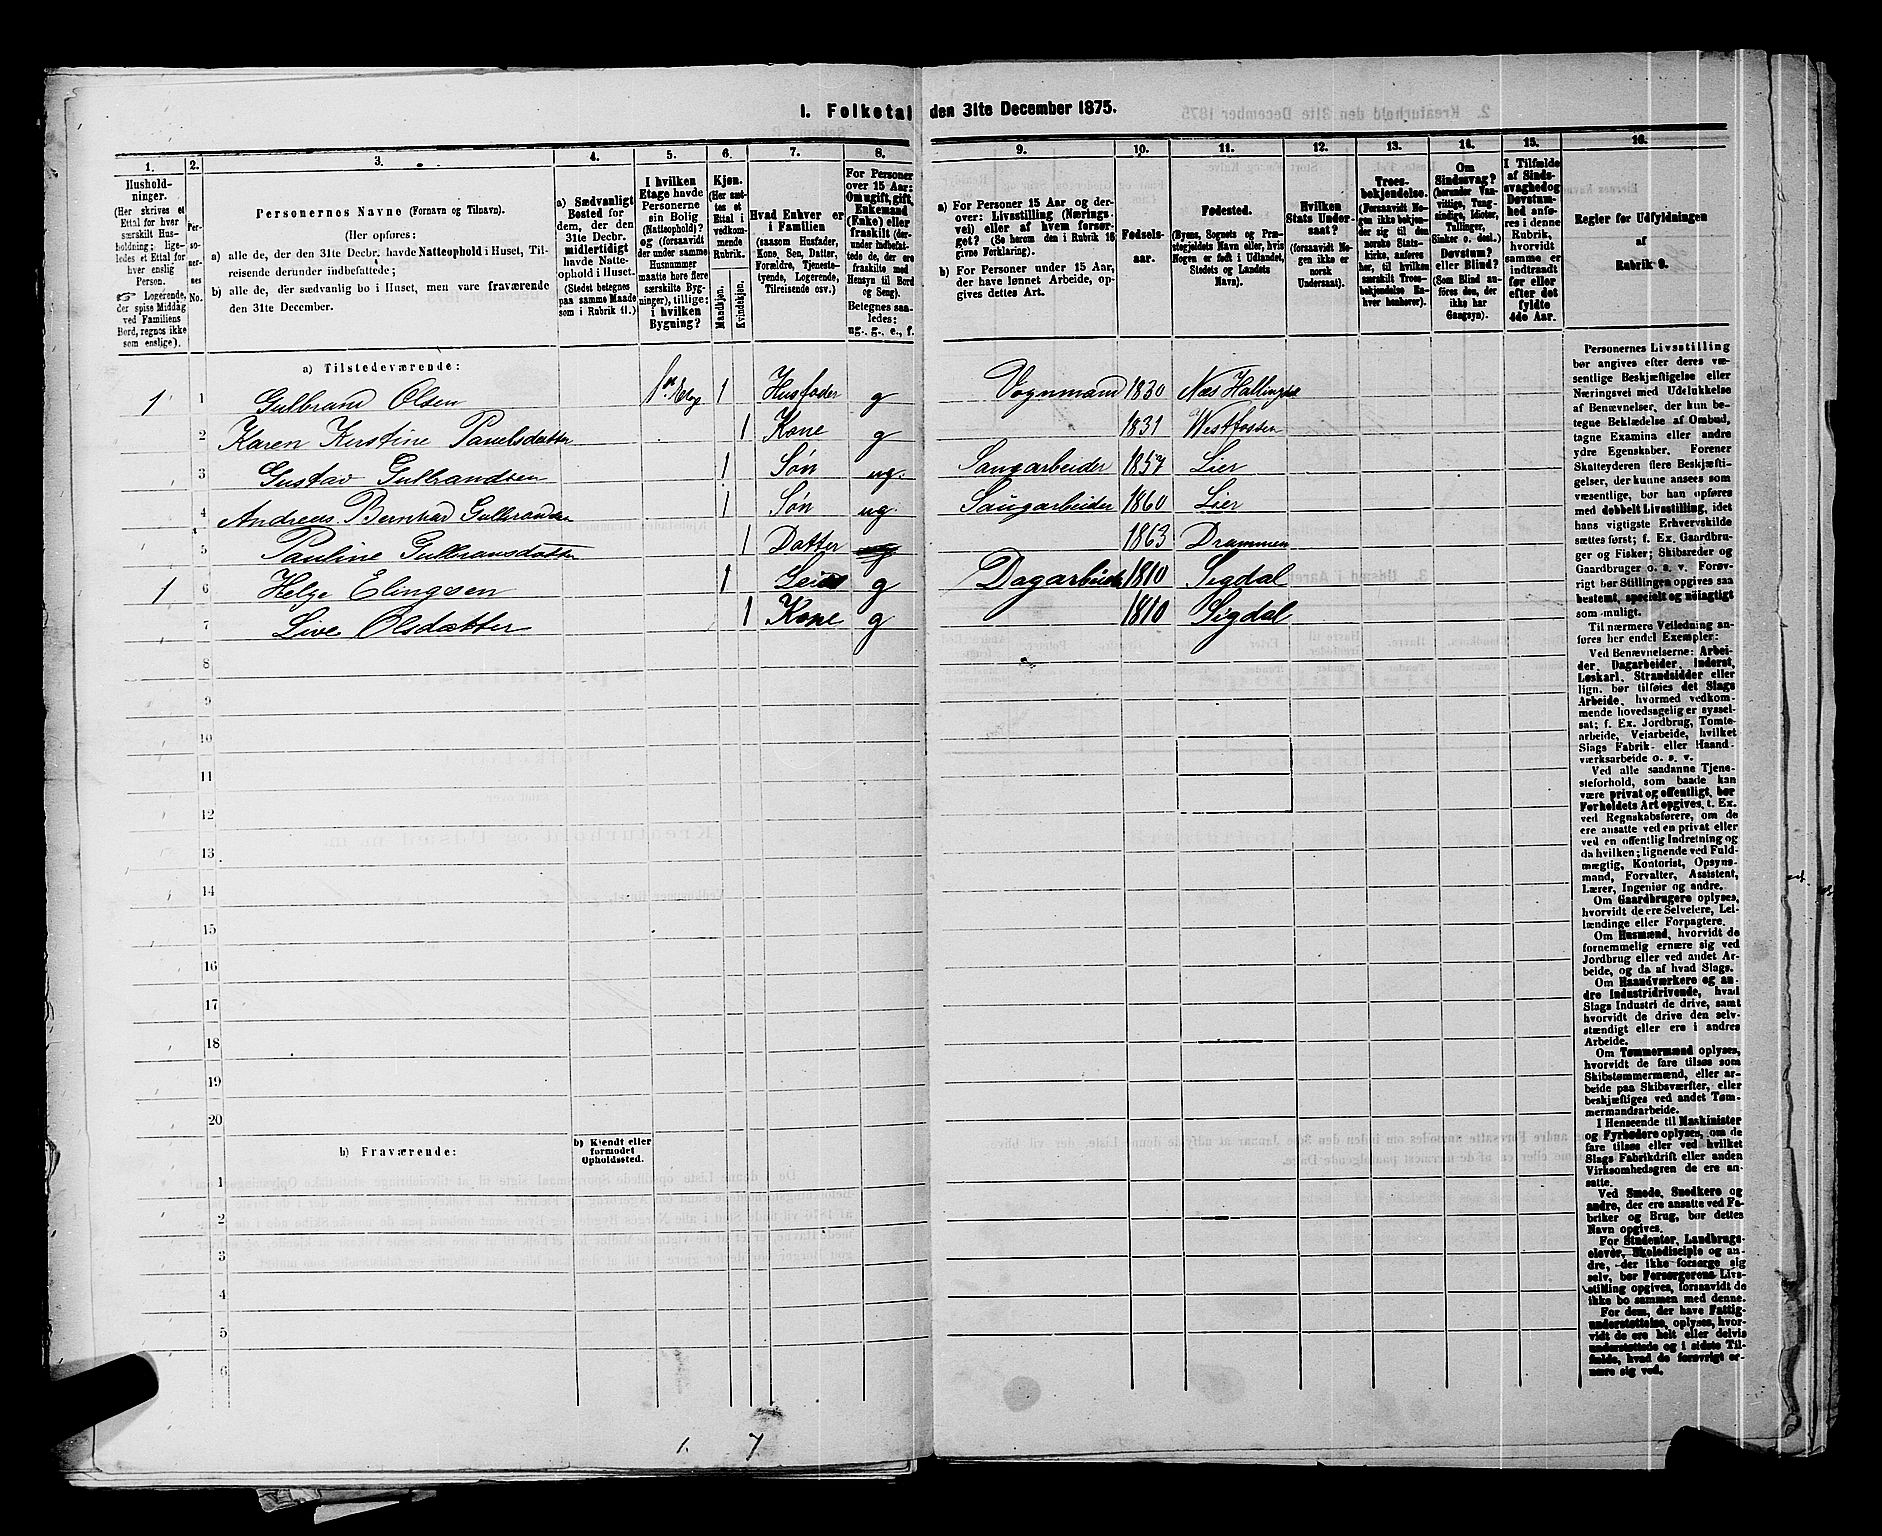 1. Folketal den 31te December 1875.
1. 2. 3. 4. 5. 6. 7. 8. 9. 10. 11. 12. 13. 14. 15. 16.
Hushold-
ninger.
(Her skrives et
Ettal for hver
særskilt Hus-
holdning; lige-
ledes et Ettal for
hver enslig
Person.
☞ Logerende,
der spise Middag
ved Familiens
Bord, regnes ikke
som enslige).
Per-
so-
ner-
nes
No.
Personernes Navne (Fornavn og Tilnavn).
(Her opføres:
a) alle de, der den 31te Decbr. havde Natteophold i Huset, Til-
reisende derunder indbefattede;
b) alle de, der sædvanlig bo i Huset, men vare fraværende
den 31te December.
a) Sædvanligt
Bosted for
dem, der den
31te Decbr.
midlertidigt
havde Natte-
ophold i Huset.
(Stedet betegnes
paa samme Maade
som i Rubrik 11.)
I hvilken
Etage havde
Personerne
sin Bolig
(Natteophold)?
og (forsaavidt
der under samme
Husnummer
maatte høre flere
særskilte Byg-
ninger), tillige:
i hvilken
Bygning?
Kjøn.
(Her sæt-
tes et
Ettal i
vedkom-
mende
Rubrik.
Mandkjøn.
Kvindekjøn.
Hvad Enhver er
i Familien
(saasom Husfader,
Kone, Søn, Datter,
Forældre, Tjeneste-
tyende, Logerende,
Tilreisende osv.)
For Personer
over 15 Aar:
Om ugift, gift,
Enkemand
(Enke) eller
fraskilt (der-
under indbefat-
tede de, der ere
fraskilte med
Hensyn til Bord
og Seng).
Betegnes saa-
ledes:
ug., g., e., f.
a) For Personer 15 Aar og der-
over: Livsstilling (Nærings-
vei) eller af hvem forsør-
get? (Se herom den i Rubrik 16
givne Forklaring).
b) For Personer under 15 Aar,
der have lønnet Arbeide, op-
gives dettes Art.
Fødsels-
aar.
Fødested.
(Byens, Sognets og Præ-
stegjeldets Navn eller, hvis
Nogen er født i Udlandet,
Stedets og Landets
Navn).
Hvilken
Stats Under-
saat?
(forsaavidt No-
gen ikke er
norsk
Undersaat).
Troes-
bekjendelse.
(Forsaavidt No-
gen ikke bekjen-
der sig til den
norske Stats-
kirke, anføres
her, til hvilken
særskilt Troes-
bekjendelse En-
hver henhører).
Om
Sindssvag?
(herunder Van-
vittige, Tung-
sindige, Idioter,
Tullinger,
Sinker o. desl.)
Døvstum?
eller Blind?
(Som Blind an-
føres den, der
ikke har
Gangsyn).
I Tilfælde
af Sinds-
svaghed og
Døvstum-
hed anfø-
res i denne
Rubrik,
hvorvidt
samme er
indtraadt
før eller
efter det
fyldte
4de Aar.
Regler for Udfyldningen
af
Rubrik 9.
a) Tilstedeværende:
1 1 Gulbrand Olsen 1ste Etag 1 Husfader g Vognmand 1830 Næs Hallingd
2 Karen Kirstine Paulsdatter 1 Kone g 1831 Westfossen
3 Gustav Gulbrandsen 1 Søn ug. Saugarbeider 1857 Lier
4 Andreas Bernhad Gulbrandsen 1 Søn ug. Saugarbeider 1860 Lier
5 Pauline Gulbransdatter 1 Datter 1863 Drammen
1 6 Helge Elingsen 1 g Dagarbeider 1810 Sigdal
7 Live Olsdatter 1 Kone g 1810 Sigdal
8
9
10
11
12
13
14
15
16
17
18
19
20
b) Fraværende:
b) Kjendt eller
formodet
Opholdssted.
1
2
3
4
5
6
1. 7.
Personernes Livsstilling
bør angives efter deres væ-
sentlige Beskjæftigelse eller
Næringsvei med Udelukkelse
af Benævnelser, der kun be-
tegne Beklædelse af Ombud,
tagne Examina eller andre
ydre Egenskaber. Forener
Skatteyderen flere Beskjæfti-
gelser, der kunne ansees som
væsentlige, bør han opføres
med dobbelt Livsstilling, idet
hans vigtigste Erhvervskilde
sættes først; f. Ex. Gaardbru-
ger og Fisker; Skibsreder og
Gaardbruger o. s. v. Forøv-
rigt bør Stillingen opgives saa
bestemt, specielt og nøiagtigt
som muligt.
Til nærmere Veiledning an-
føres her endel Exempler:
Ved Benævnelserne: Arbei-
der, Dagarbeider, Inderst,
Løskarl, Strandsidder eller
lign. bør tilføies det Slags
Arbeide, hvormed vedkom-
mende hovedsagelig er syssel-
sat; f. Ex. Jordbrug, Tomte-
arbeide, Veiarbeide, hvilket
Slags Fabrik- eller Haand-
værksarbeide o. s. v.
Ved alle saadanne Tjene-
steforhold, som baade kan
være privat og offentligt, bør
Forholdets Art opgives, f. Ex.
ved Regnskabsførere, om de
ere ansatte ved en privat eller
ved en offentlig Indretning og
da hvilken; lignende ved Fuld-
mægtig, Kontorist, Opsyns-
mand, Forvalter, Assistent,
Lærer, Ingeniør og andre.
Om Gaardbrugere oplyses,
hvorvidt de ere Selveiere, Lei-
lændinge eller Forpagtere.
Om Husmænd, hvorvidt de
fornemmelig ernære sig ved
Jordbrug eller ved andet Ar-
beide, og da af hvad Slags.
Om Haandværkere og an-
dre Industridrivende, hvad
Slags Industri de drive, samt
hvorvidt de drive den selv-
stændigt eller ere i andres
Arbeide.
Om Tømmermænd oplyses,
hvorvidt de fare tilsøs som
Skibstømmermænd, eller ar-
beide paa Skibsværfter, eller
beskjæftiges ved andet Tøm-
mermandsarbeide.
I Henseende til Maskinister
og Fyrbødere oplyses, om de
fare tilsøs eller ved hvilket
Slags Fabrikdrift eller anden
Virksomhedsgren de ere an-
satte.
Ved Smede, Snedkere og
andre, der ere ansatte ved Fa-
briker og Brug, bør dettes
Navn opgives.
For Studenter, Landbrugs-
elever, Skoledisciple og an-
dre, der ikke forsørge sig
selv, bør Forsørgerens Livs-
stilling opgives, forsaavidt de
ikke bo sammen med denne.
For dem, der have Fattig-
understøttelse, oplyses, hvor-
vidt de ere helt eller delvis
understøttede og i sidste Til-
fælde, hvad de forøvrigt er-
nære sig ved.